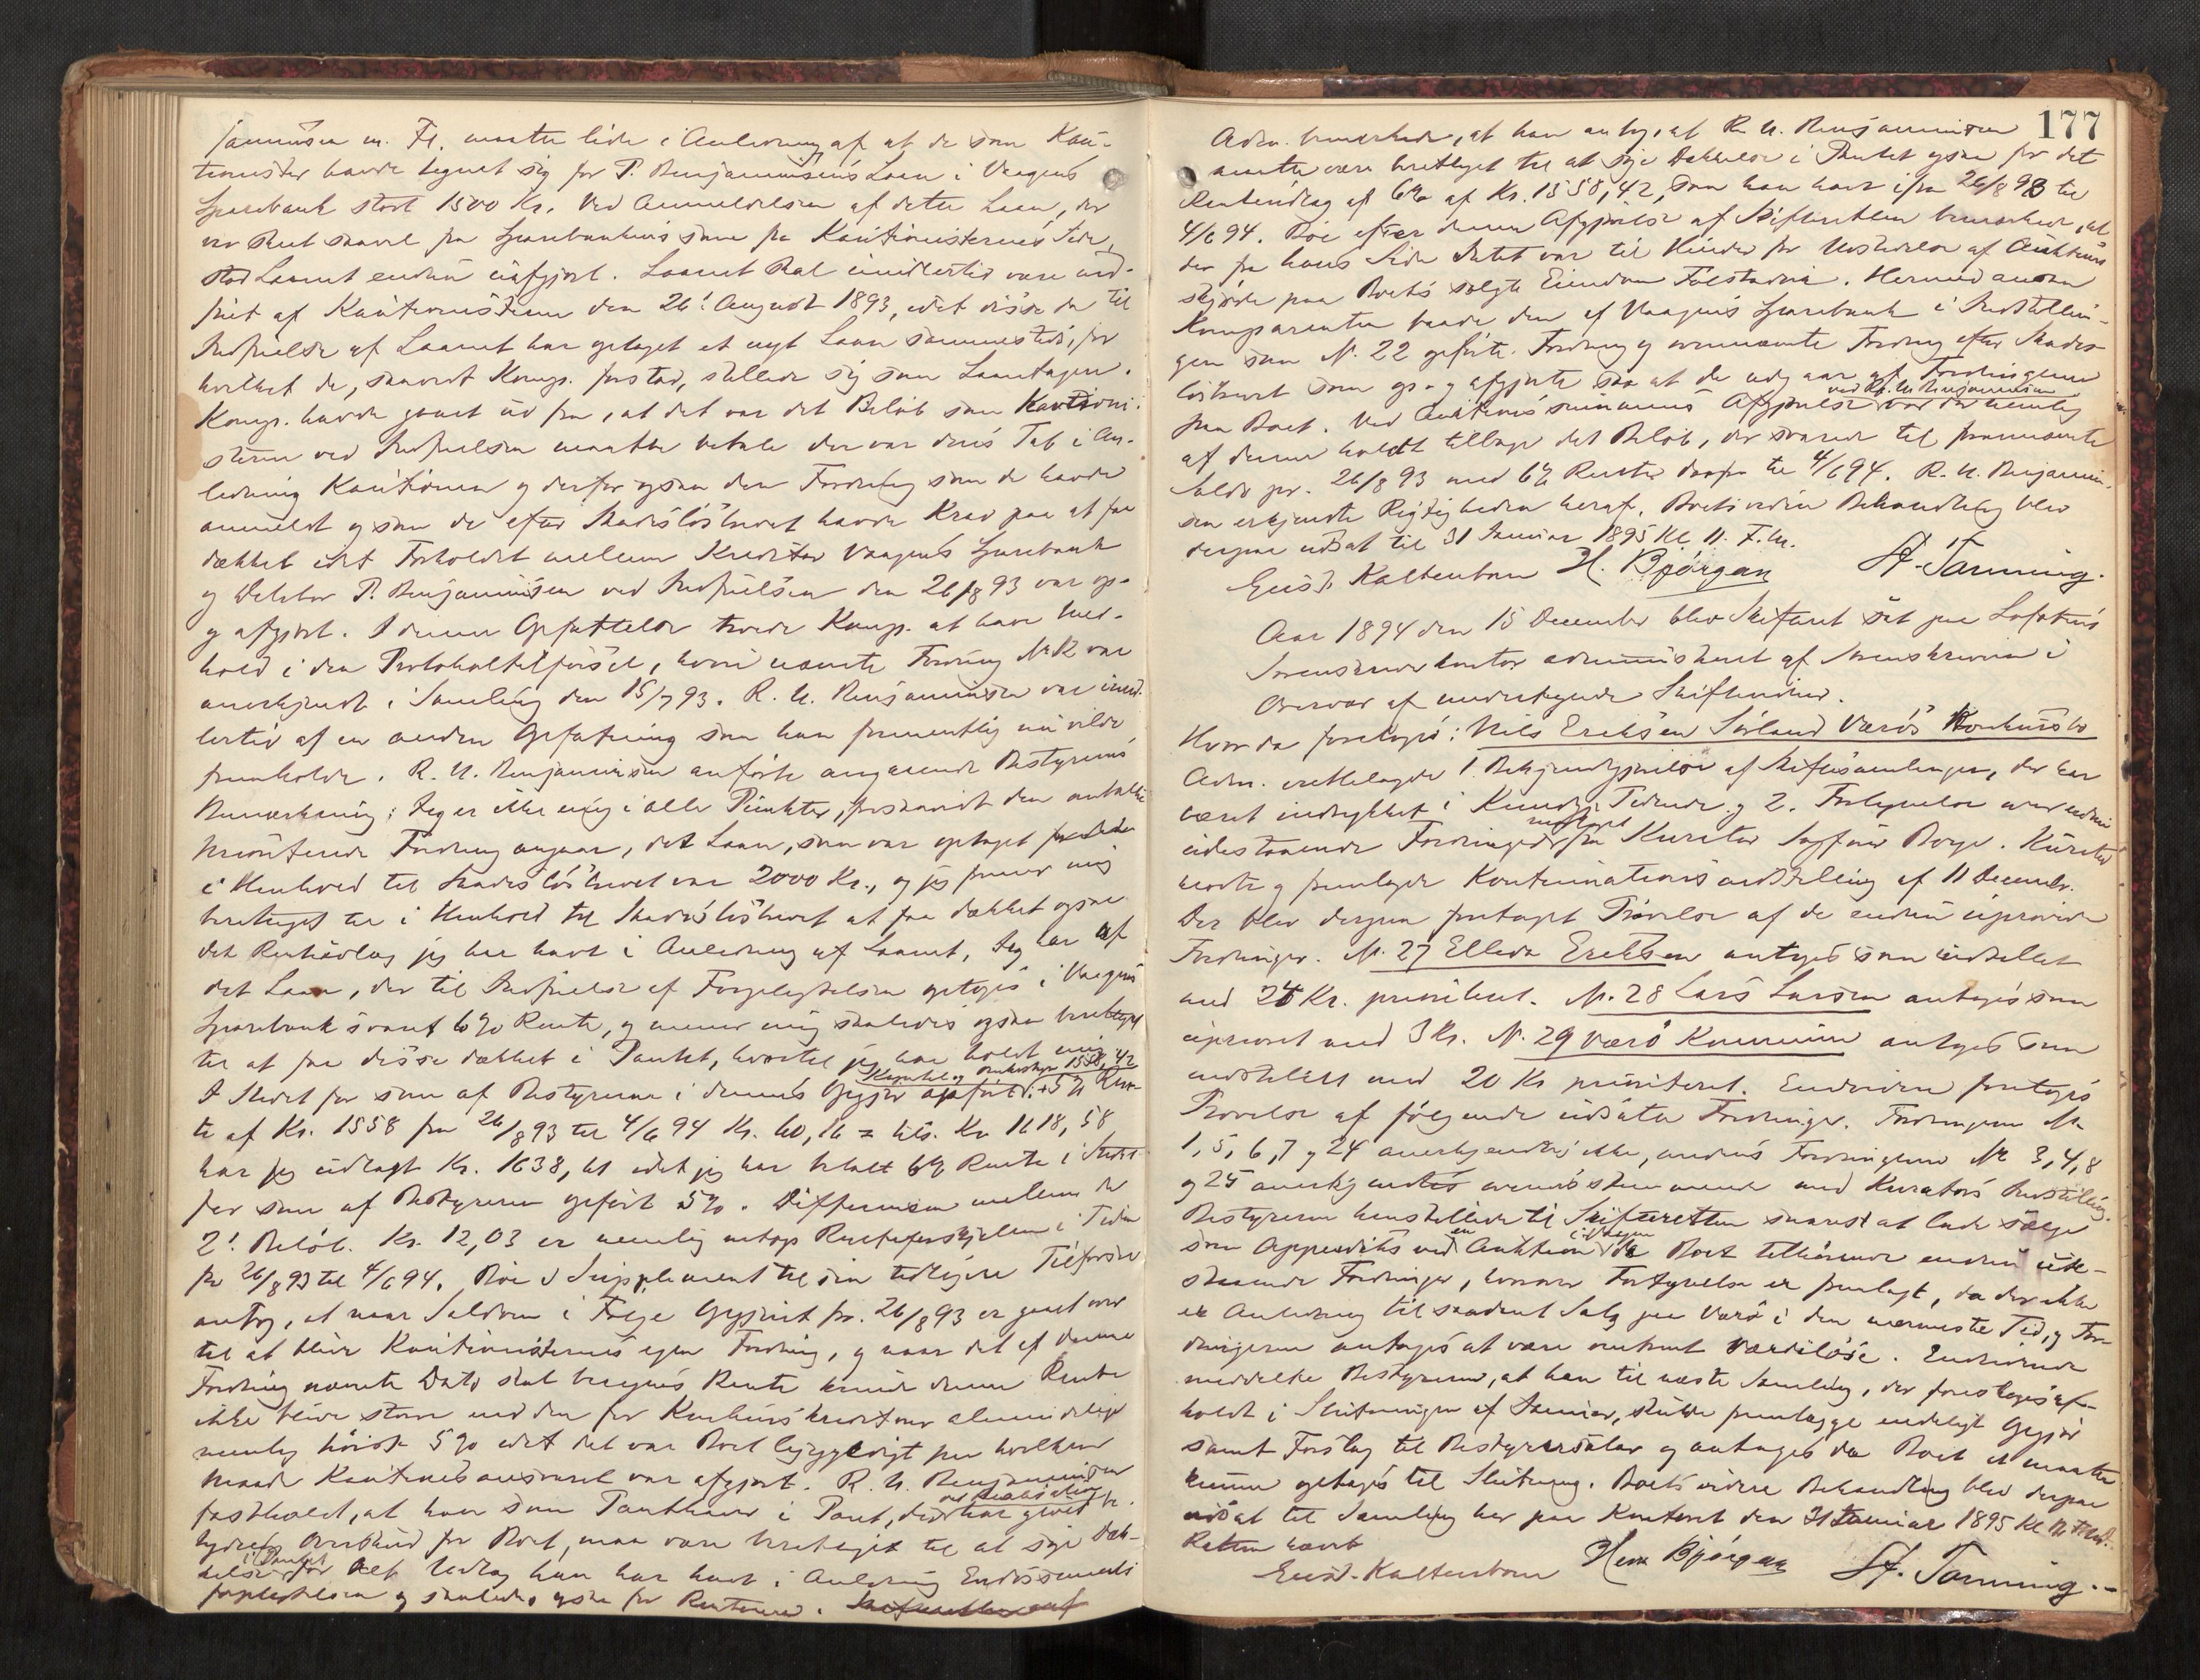 jaminsen m. Fl. maatte lide i Anledning af at de som Kau-
tionister havde tegnet sig for P. Benjaminsens Laan i Vaagens
Sparebank stort 1500 Kr. Ved Anmeldelsen af dette Laan, der
var skeet saavel fra Sparebankens som fra Kautionisternes Side,
stod Laanet endnu uafgjort. Laanet skal imidlertid være ind-
friet af Kautionisterne den 26' August 1893, idet disse da til
Indfrielse af Laanet har optaget et nyt Laan sammesteds, for
hvilket de, saavidt Komp. forstod, stillede sig som Laantagere.
Komp. havde gaaet ud fra, at det var det Beløb som Kautioni-
sterne ved Indfrielsen maatte betale der var deres Tab i An-
ledning Kautionen og derfor ogsaa den Fordring som de havde
anmeldt og som de efter Skadesløsbrevet havde Krav paa at faa
dækket idet Forholdet mellem Kreditor Vaagens Sparebank
og Debitor P. Benjaminsen ved Indfrielsen den 26/8 93 var op-
og afgjort. I denne Opfattelse troede Komp. at have Med-
hold i den Protokoltilførsel, hvori nævnte Fordring No 12 var
anerkjendt i Samling den 15/7 93. R. U. Benjaminsen var imid-
lertid af en anden Opfatning som han formentlig nu vilde
fremholde. R. U. Benjaminsen anførte angaaende Bestyrerens
Bemærkning: Jeg er ikke enig i alle Punkter, forsaavidt den omtalte
prioriterede Fordring angaar, det Laan, som var optaget
i Henhold til Skadesløsbrevet var 2000 Kr., og jeg finner mig
berettiget til i Henhold til Skadesløsbrevet at faa dækket ogsaa
det Renteudlæg jeg har havt i Anledning af Laanet, Jeg har af
det Laan, der til Indfrielse af Forpligtelsen optoges i Vaagens
Sparebank svaret 6 % Rente, og mener mig saaledes ogsaa berettiget
til at faa disse dækket i Pantet, hvortil jeg har holdt mig
Kapital og Omkostn. 1558,42
I Stedet for som af Bestyreren i dennes Opgjør opført: + 5 % Ren-
te af Kr. 1558 fra 26/8 93 til 4/6 94 Kr. 60,16 = tils. Kr 1618,58
har jeg udlagt Kr. 1638,61 idet jeg har betalt 6 % Rente i Stedet
for som af Bestyreren opført 5 %. Differensen mellem de
2' Beløb. Kr. 12,03 er nemlig netop Renteforskjellen i Tiden
fra 26/8 93 til 4/6 94. Boe i Supplement til sin tidligere Tilførsel
antog, at naar Saldoen i Følge Opgjør pr. 26/8 93 er gaaet over
til at blive Kautionisternes egen Fordring, og naar det af denne
Fordring nævnte Dato skal beregnes Rente kunde denne Rente
ikke blive større end den for Konkurskreditorer almindelige
nemlig høist 5 % idet det var Boet ligegyldigt paa hvilken
Maade Kautionsansvaret var afgjort. R. U. Benjaminsen
ved Realisation
fastholdt, at han som Panthaver i Pant, der har givet be-
tydelig Overskud for Boet, maa være berettiget til at søge Dæk-
i Pantet
kelse for det Udlæg han har havt i Anledning Endossements
forpligtelsen og saaledes ogsaa for Renterne.
177
Adm. bemærkede, at han antog, at R. U. Benjaminsen
maatte være berettiget til at søge Dækkelse i Pantet ogsaa for det
Renteudlæg af 6% af Kr. 1558,42, som han havt ifra 26/8 93 til
4/6 94. Boe efter denne Afgjørelse af Skifteretten bemærkede, at
der fra hans Side Intet var til Hinder for Udstedelse af Auktions
skjøde paa Boets solgte Eiendom Følstadvia. Hermed ansaa
Komparenten baade den af Vaagens Sparebank i Indstillin-
gen som No. 22 opførte Fordring og ovennævnte Fordring efter Skades-
løsbrevet som op- og afgjorte saa at de udgaar af Fordringerne
ved R. U. Benjaminsen
paa Boet. Ved Auktionssummens Afgjørelse var der nemlig
af denne holdt tilbage det Beløb, der svarede til fornævnte
Saldo pr. 26/8 93 med 6% Renter deraf til 4/6 94. R. U. Benjamin-
sen erkjendte Rigtigheden heraf. Boets videre Behandling blev
derpaa udsat til 31 Januar 1895 Kl. 11. F.M.
Eeist. Kaltenborn H. Bjørgan A. Tanning.
Aar 1894 den 15 December blev Skifteret sat paa Lofotens
Sorenskriverkontor administreret af Sorenskriveren i
Overvær af undertegnede Skiftevidner.
Hvor da foretoges: Nils Eriksen Sørland Værøs Konkursbo
Adm. fremlagde 1. Bekjendtgjørelse af Skiftesamlingen, der har
været indrykket i Kundgj. Tidende og 2. Fortegnelse over endnu
modtaget
udestaaende Fordringer fra Kurator Sagfører Borge. Kurator
mødte og fremlagde Kontinuationsindstilling af 11 Decembr.
Der blev derpaa foretaget Prøvelse af de endnu uprøvede
Fordringer. No. 27 Ellida Eriksen antoges som indstillet
med 24 Kr. prioriteret. No. 28 Lars Larsen antoges som
uprioret med 3 Kr. No. 29 Værø Kommune antoges som
indstillet med 20 Kr prioriteret. Endvidere foretoges
Prøvelse af følgende udsatte Fordringer. Fordringerne No
1, 5, 6, 7 og 24 anerkjendtes ikke, medens Fordringerne No 3, 4, 8
og 25 anerkjendtes overensstemmende med Kurators Indstilling.
Bestyreren henstillede til Skifteretten snarest at lade sælge
en i Vaagen
som Appendiks ved Auktion de Boet tilhørende endnu ude-
staaende Fordringer, hvorover Fortegnelse er fremlagt, da der ikke
er Anledning til saadant Salg paa Værø i den nærmeste Tid, og For-
dringerne antages at være omtrent værdiløse. Endvidere
meddelte Bestyreren, at han til næste Samling, der foresloges af-
holdt i Slutningen af Januar, skulde fremlægge endeligt Opgjør
samt Forslag til Bestyrersalær og antages da Boet at maatte
kunne optages til Slutning. Boets videre Behandling blev derpaa
udsat til Samling her paa Kontoret den 31 Januar 1895 Kl. 11 Fmd.
Retten hævet
Eeist. Kaltenborn Hem Bjørgan A. Tanning.